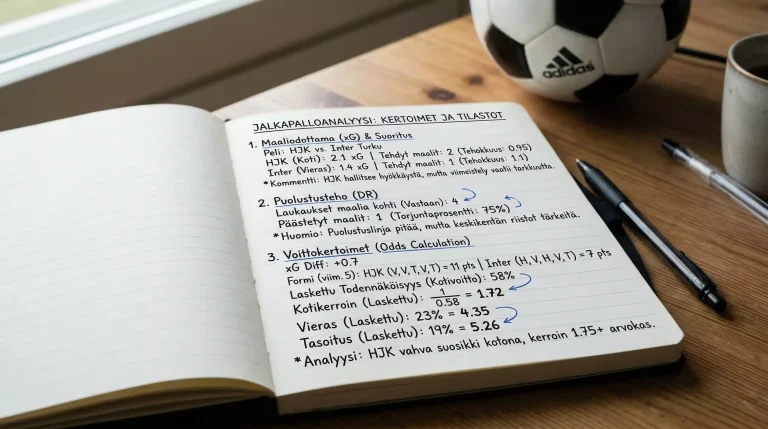 adidas
JALKAPALLOANALYYSI: KERTOIMET JA TILASTOT
1. Maaliodottama (xG) & Suoritus
Peli: HJK vs. Inter Turku
HJK (Koti): 2.1 xG | Tehdyt maalit: 2 (Tehokuus: 0.95)
Inter (Vieras): 1.4 xG | Tehdyt maalit: 1 (Tehokuus: 1.1)
*Kommentti: HJK hallitsee hyökkäystä, mutta viimeistely vaatii tarkkuutta.
2. Puolustusteho (DR)
Laukaukset maalia kohti (Vastaan): 4
Päästetyt maalit: 1 (Torjuntaprosentti: 75%)
*Huomio: Puolustuslinja pitää, mutta keskikentän riistot tärkeitä.
3. Voittokertoimet (Odds Calculation)
xG Diff: +0.7
Formi (viim. 5): HJK (V,V,T,V,T) = 11 pts | Inter (H,V,H,V,T) = 7 pts
Laskettu Todennäköisyys (Kotivoitto): 58%
Kotikerroin (Laskettu): 1/0.58 = 1.72
Vieras (Laskettu): 23% = 4.35
Tasoitus (Laskettu): 19% = 5.26
*Analyysi: HJK vahva suosikki kotona, kerroin 1.75+ arvokas.